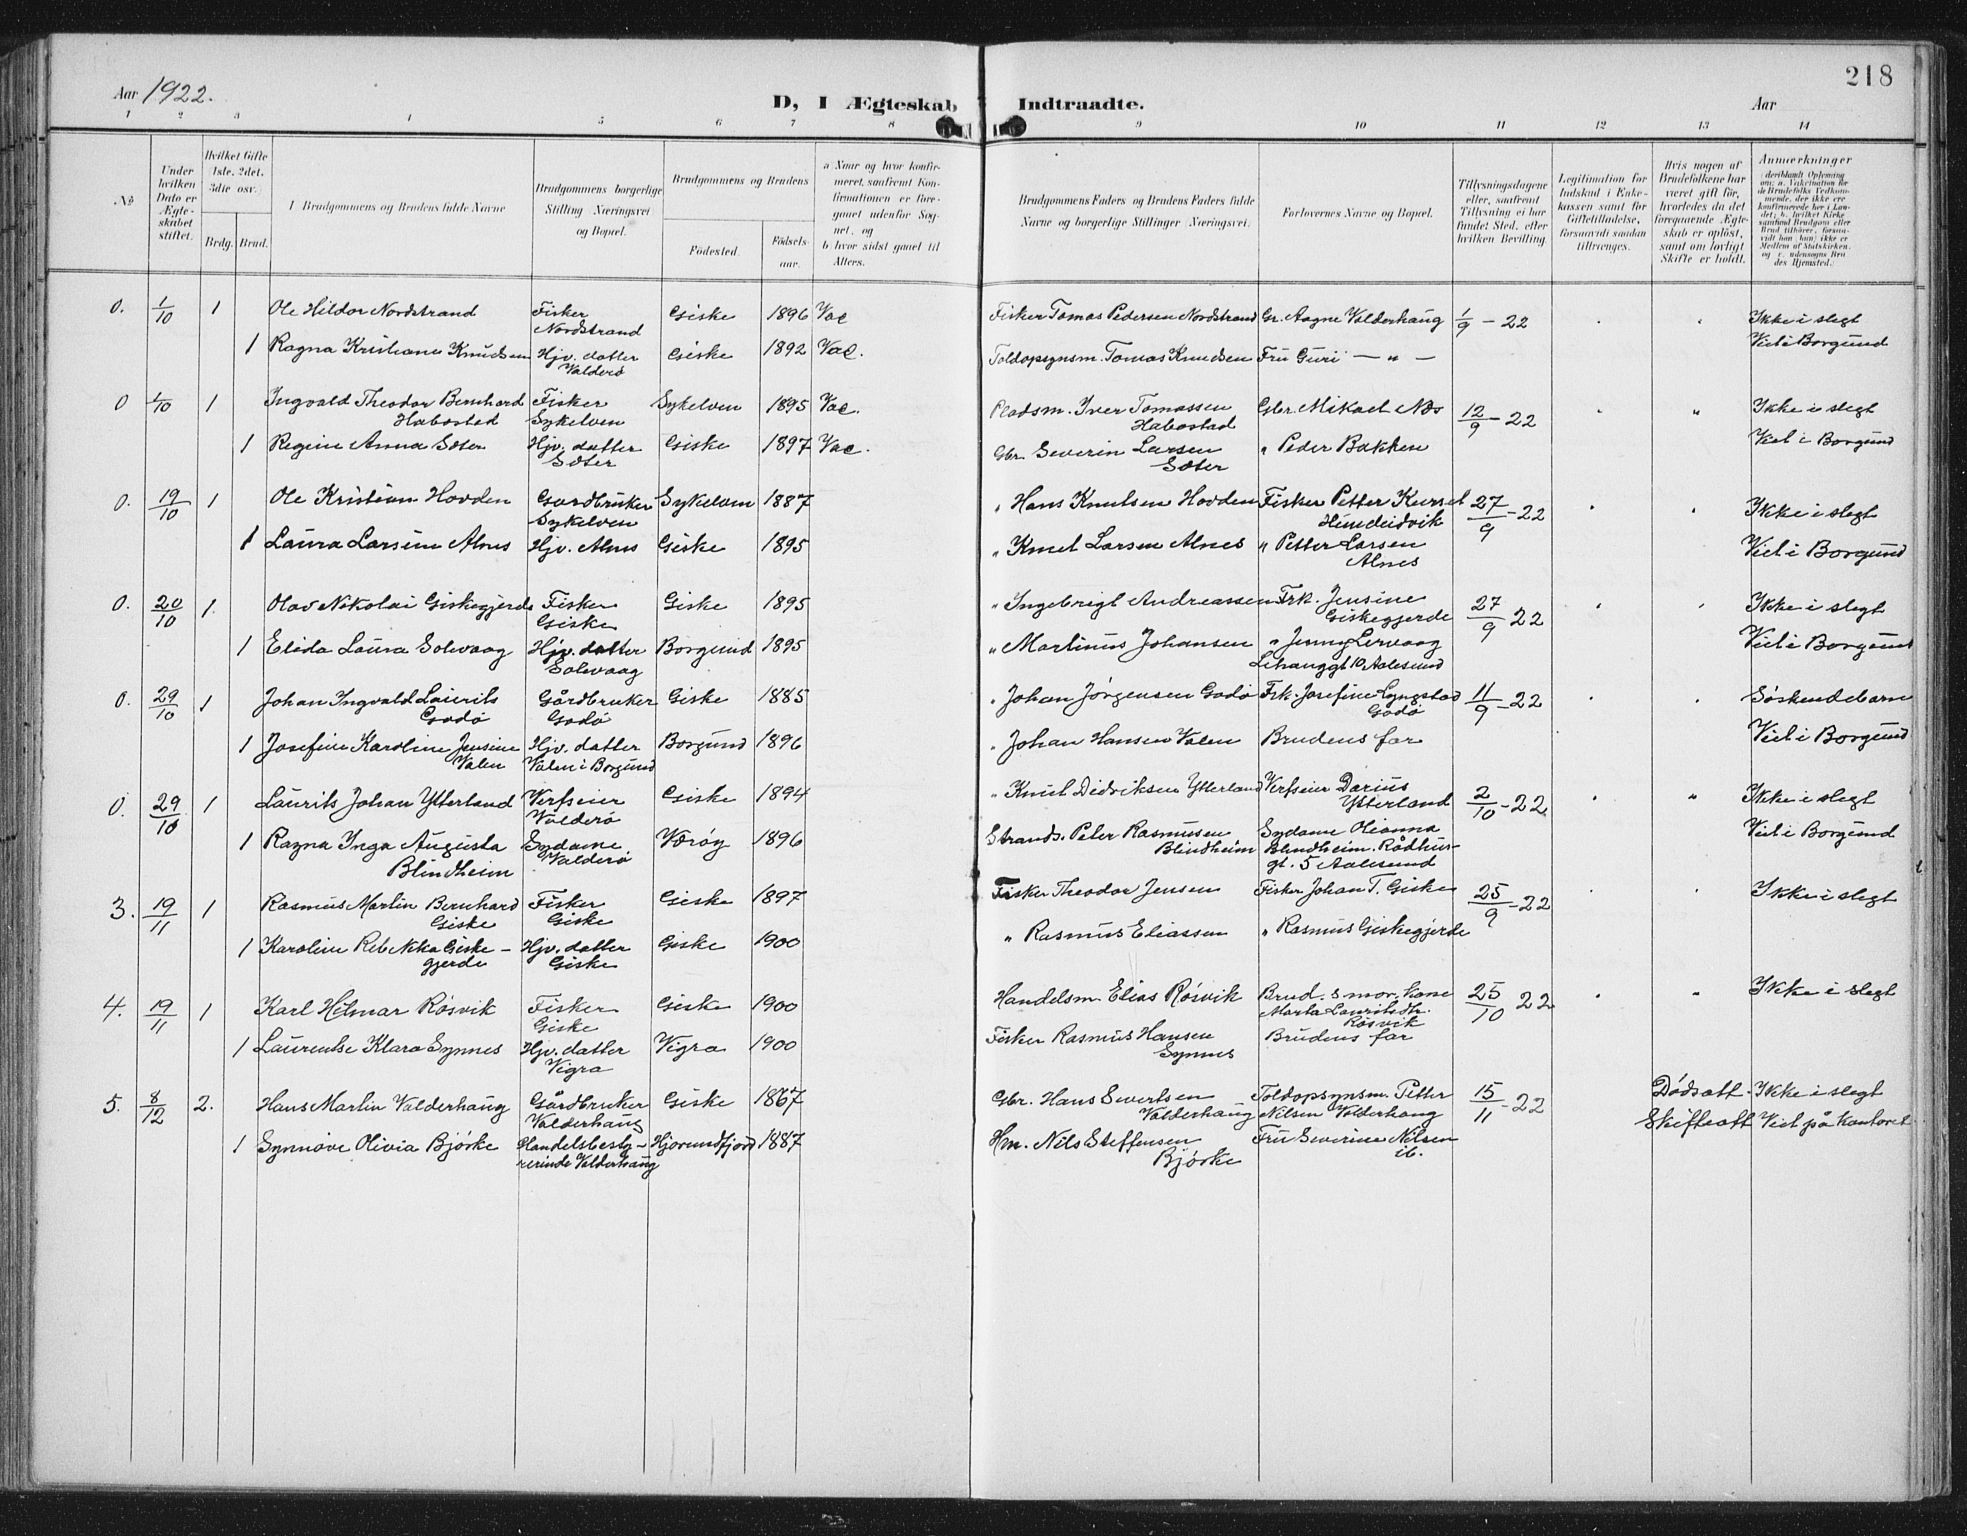 218
Aar 1922.
D, I Ægteskab Indtraadte.
Aar
1 2 3 4 5 6 7 8 9 10 11 12 13 14
No
Under hvilken Dato er Ægteskabet stiftet.
Hvilket Gifte 1ste, 2det, 3die osv.
Brdg. Brud.
Brudgommens og Brudens fulde Navne
Brudgommens borgerlige Stilling Næringsvei og Bopæl.
Brudgommens og Brudens
Fødested.
Fødselsaar.
a Naar og hvor konfirmeret, samt
b hvor sidst gaaet til Alters.
Brudgommens Faders og Brudens Faders fulde Navne og borgerlige Stillinger (Næringsvei.
Forlovernes Navne og Bopæl.
Tillysningsdagene eller, saafremt Tillysning ei har fundet Sted, efter hvilken Bevilling.
Legitimation for Indskud i Enkekassen samt for Giftetilladelse, forsaavidt saadan tiltrænges.
Hvis nogen af Brudefolkene har været gift før, hvorledes da det foregaaende Ægteskab er opløst, samt om lovligt Skifte er holdt.
Anmerkninger
0. 1/10 1 Ole Hildor Nordstrand Fisker Nordstrand Giske 1896 Vac Fisker Tomas Pedersen Nordstrand Gr. Aagne Valderhaug 1/9 - 22 Ikke i slegt
1 Ragna Kristiane Knudsen Hjv. datter Valderø Giske 1892 Vac. Toldopsynsm. Tomas Knudsen Fru Guri — " — Viet i Borgund
0 1/10 1 Ingvald Theodor Bernhard Habostad Fisker Sykelven Sykelven 1895 Vac. Pladsm. Iver Tomassen Habostad Gbr. Mikael Næs 12/9 - 22 " Ikke i slegt
1 Regine Anna Sæter Hjv. datter Sæter Giske 1897 Vac. Gbr. Severin Larsen Sæter " Peder Bakken Viet i Borgund
0. 19/10 1 Ole Kristian Hovden Gardbruker Sykelven Sykelven 1887 " Hans Knutsen Hovden Fisker Petter Kurset Hundeidvik 27/9 - 22 Ikke i slegt
1 Laura Larsine Alnes Hjv. Alnes Giske 1895 " Knut Larsen Alnes " Petter Larsen Alnes Viet i Borgund
0. 20/10 1. Olav Nikolai Giskegjerde Fisker Giske Giske 1895 " Ingebrigt Andreassen Frk. Jensine Giskegjerde 27/9 22 Ikke i slegt
1 Elida Laura Solevaag Hjv. datter Solevaag Borgund 1895 " Martinus Johansen " Jenny Lervaag Lihauggt 10 Aalesund Viet i Borgund
0. 29/10 1 Johan Ingvald Laurits Godø Gårdbruker Godø Giske 1885 " Johan Jørgensen Godø Frk. Josefine Lyngstad Godø 11/9 - 22 Søskendebarn
1 Josefine Karoline Jensine Valen Hjv. datter Valen i Borgund Borgund 1896 " Johan Hansen Valen Brudens far Viet i Borgund
0. 29/10 1 Laurits Johan Ytterland Verfseier Valderø Giske 1894 " Knut Didriksen Ytterland Verfseier Darius Ytterland 2/10 - 22 " Ikke i slegt
1 Ragna Inga Augusta Blindheim Sydame Valderø Værøy 1896 Strands. Peter Rasmussen Blindheim Sydame Olianna Blindheim. Rådhusgt. 5 Aalesund Viet i Borgund
3. 19/11 1 Rasmus Martin Bernhard Giske Fisker Giske Giske 1897 Fisker Theodor Jensen Fisker Johan T. Giske 25/9 - 22 Ikke i slegt
1 Karoline Rebekka Giskegjerde Hjv. datter Giske Giske 1900 " Rasmus Eliassen " Rasmus Giskegjerde
4. 19/11 1 Karl Hilmar Røsvik Fisker Giske Giske 1900 Handelsm. Elias Røsvik Brud. s mor. kone Marta Lauritsdtr. Røsvik 25/10 22 " Ikke i slegt
1 Laurentse Klara Synnes Hjv. datter Vigra Vigra 1900 Fisker Rasmus Hansen Synnes Brudens far
5. 8/12 2. Hans Martin Valderhaug Gårdbruker Valderhaug Giske 1867 Gbr. Hans Sivertsen Valderhaug Toldopsynsm. Petter Nilsen Valderhaug 15/11 - 22 Dødsatt. Skifteatt Ikke i slegt Viet på kontoret
1 Synnøve Olivia Bjørke Handelsbestyrerinde Valderhaug Hjørundfjord 1887 Hm. Nils Steffensen Bjørke Fru Severine Nilsen ib.